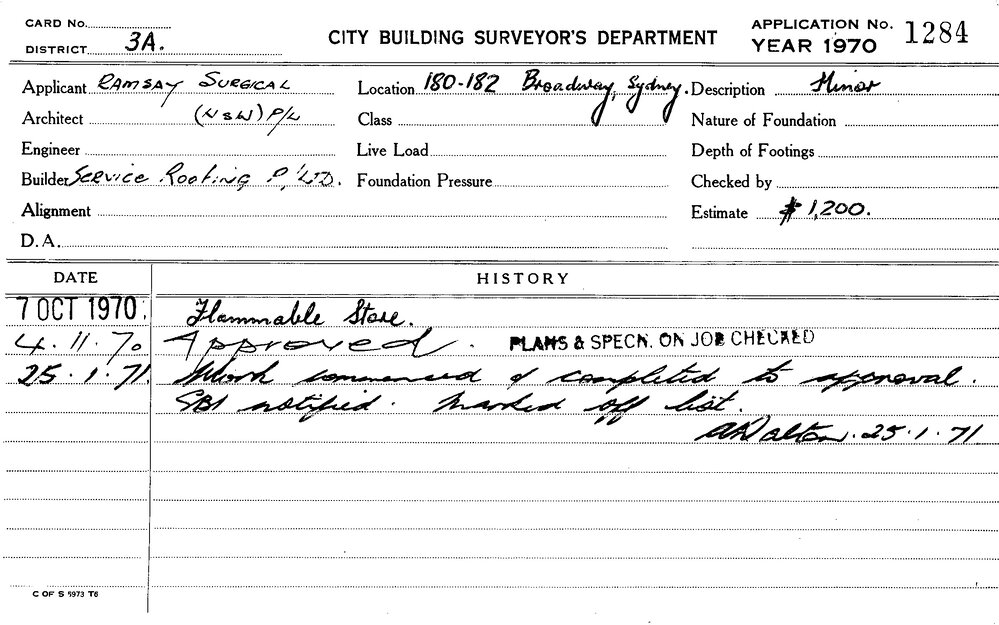 CARD No.
DISTRICT 3A.
CITY BUILDING SURVEYOR'S DEPARTMENT
APPLICATION No. 1284
YEAR 1970
Applicant RAMSAY SURGICAL
Location 180-182 Broadway, Sydney.
Description Minor
Architect (NSW) P/L
Class
Nature of Foundation
Engineer
Live Load
Depth of Footings
Builder SERVICE ROOFING P/LTD.
Foundation Pressure
Checked by
Alignment
Estimate $1,200.
D.A.
DATE HISTORY
7 OCT 1970. Flammable Store.
4.11.70 Approved. PLANS & SPECN. ON JOB CHECKED
25.1.71. Work commenced & completed to approval.
SBI notified. Marked off list.
25.1.71
C OF S 5973 T6